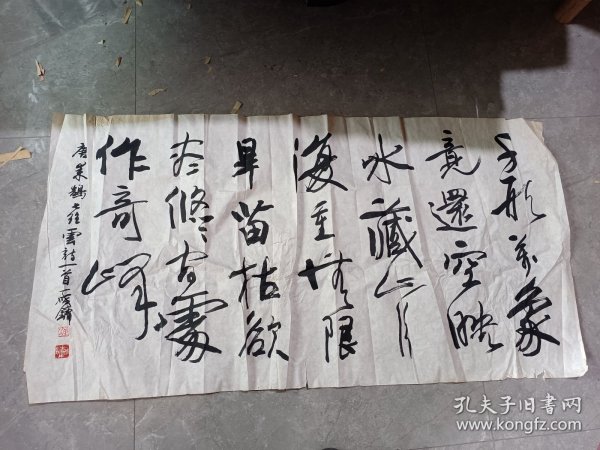 千形萬象
竟還空映
水藏山片
復重無限
旱苗枯欲
尽悠悠閒處
作奇峰
唐来鵠七絶雲詩一首
孔夫子旧书网
www.kongfz.com